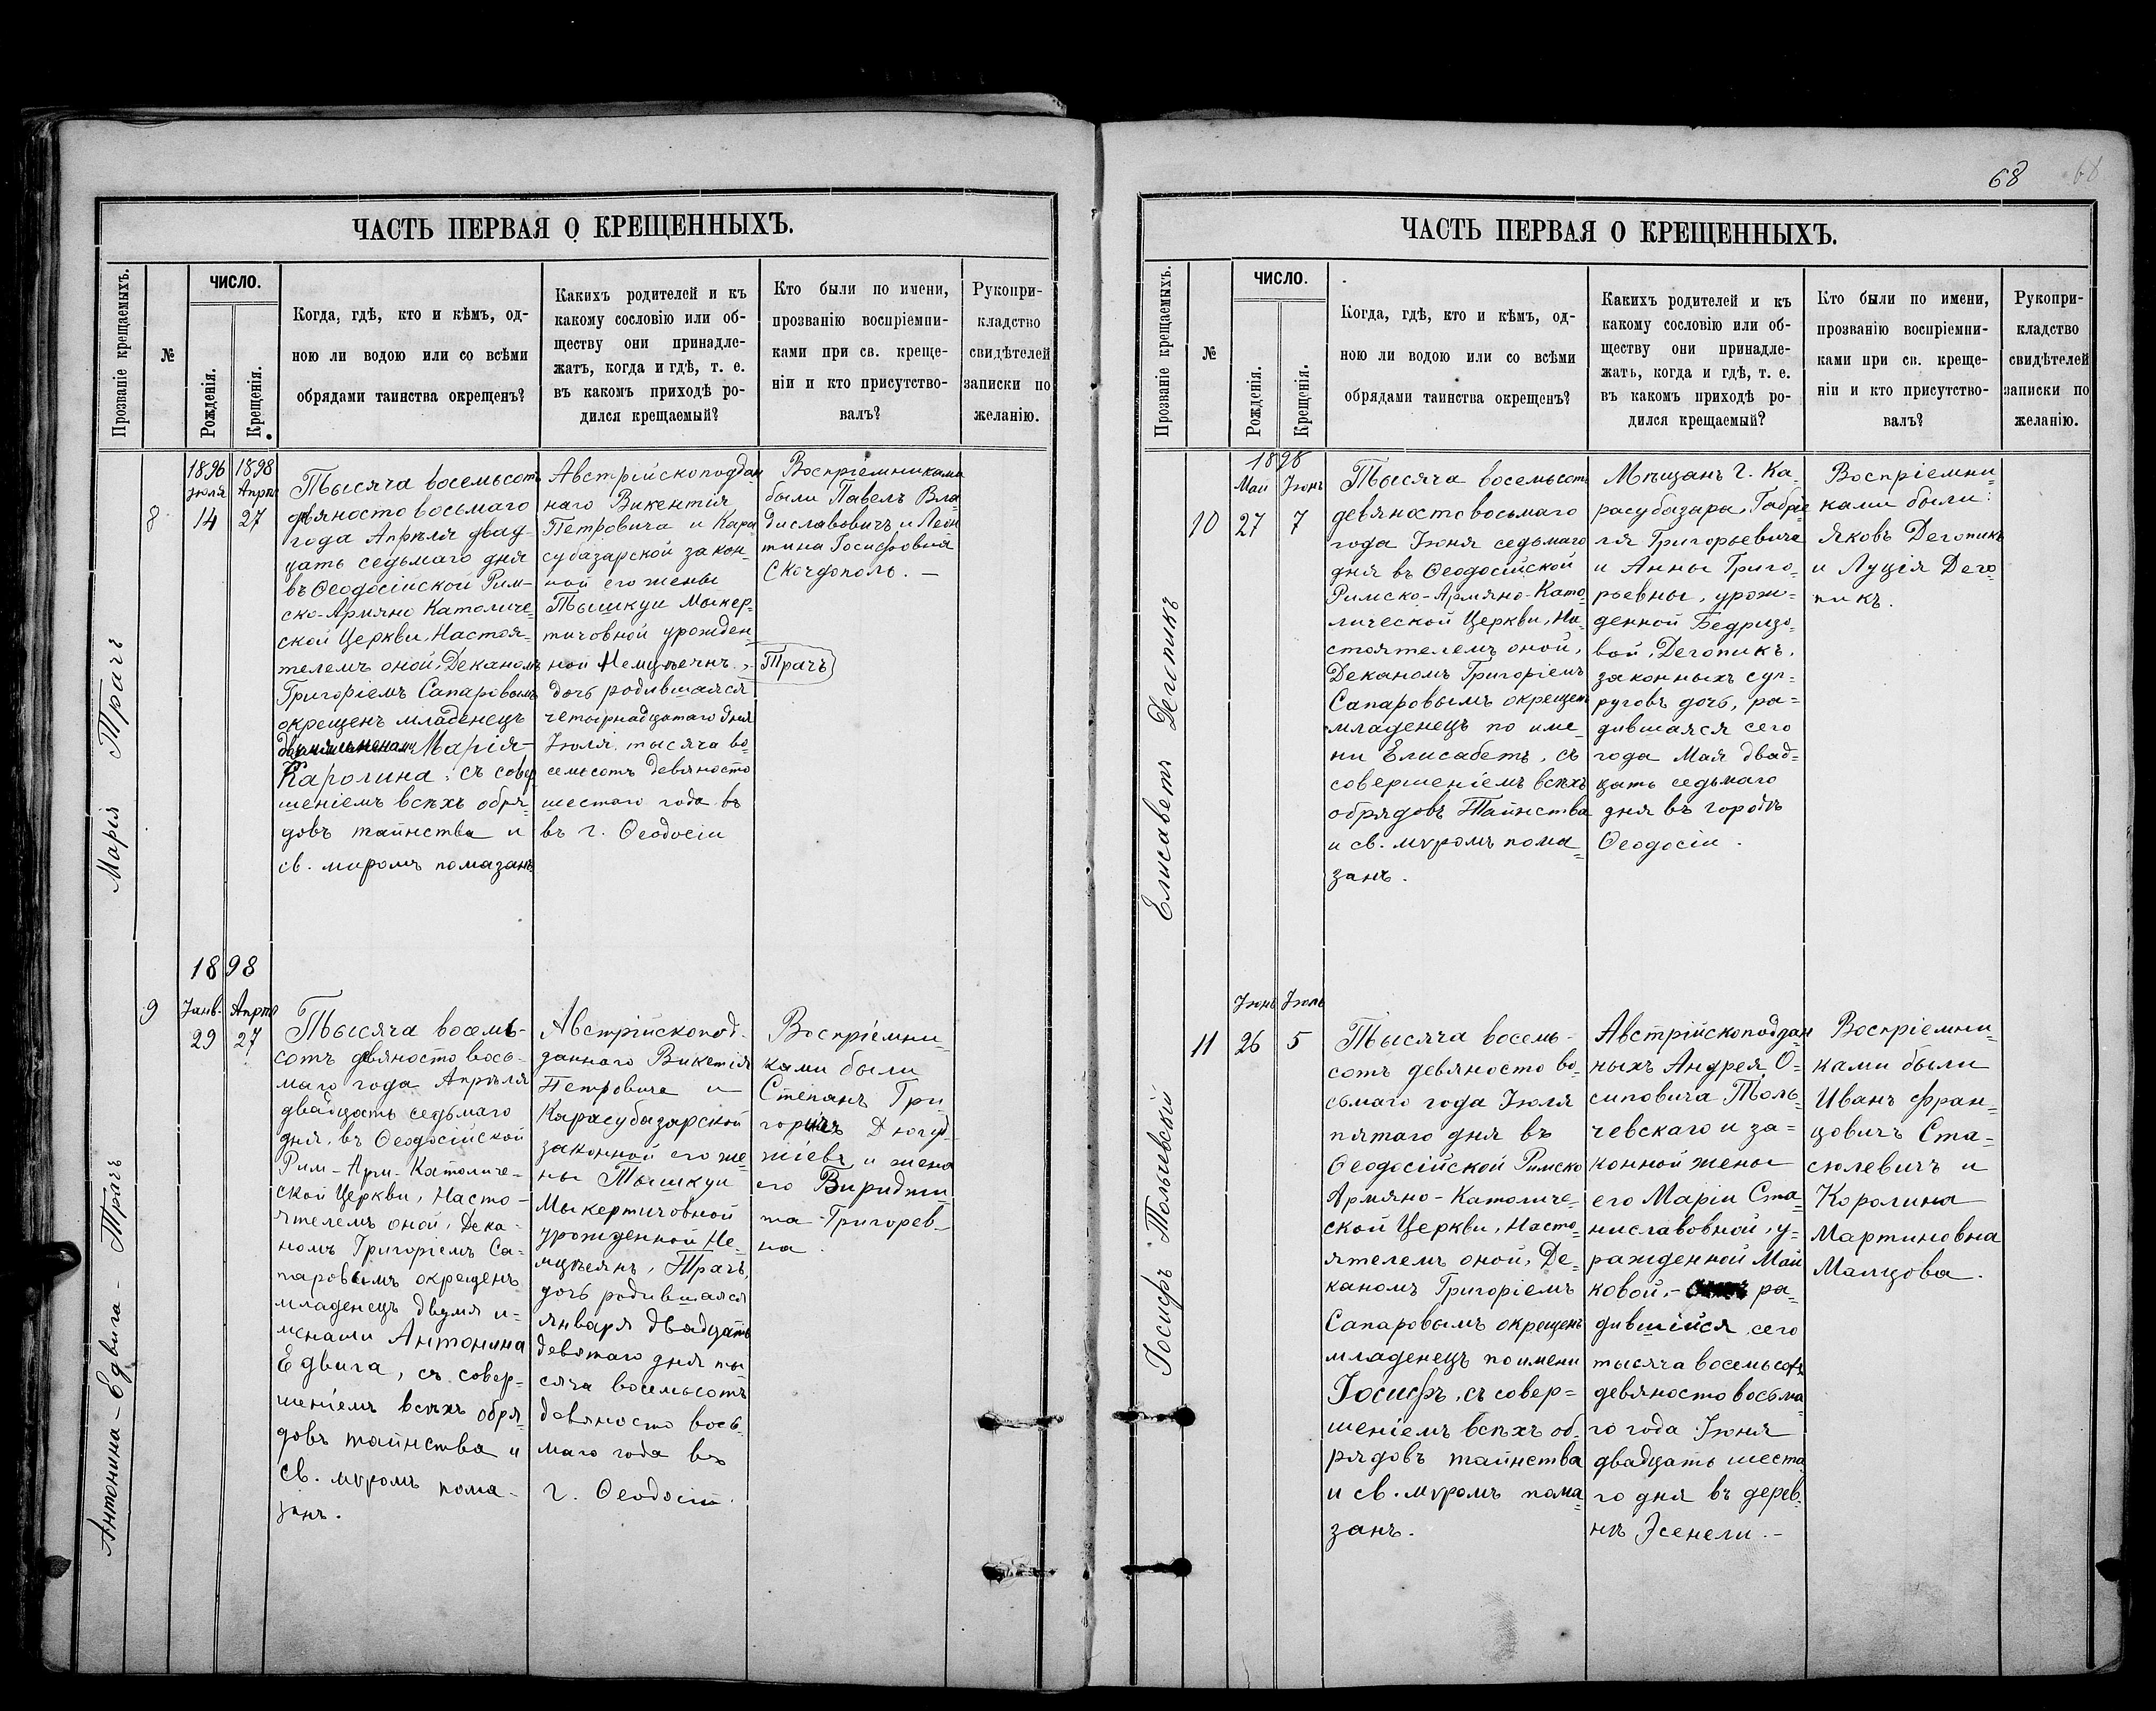 68
68
ЧАСТЬ ПЕРВАЯ О КРЕЩЕННЫХЪ.
Прозваніе крещаемыхъ.
№
ЧИСЛО.
Рожденія.
Крещенія.
Когда, гдѣ, кто и кѣмъ, од-
ною ли водою или со всѣми
обрядами таинства окрещенъ?
Какихъ родителей и къ
какому сословію или об-
ществу они принадле-
жатъ, когда и гдѣ, т. е.
въ какомъ приходѣ ро-
дился крещаемый?
Кто были по имени,
прозванію воспріемни-
ками при св. креще-
ніи и кто присутство-
валъ?
Рукопри-
кладство
свидѣтелей
записки по
желанію.
Марія Трачъ
8
1896
Іюля
14
1898
Апрѣ
27
Тысяча восемьсотъ
девяносто восьмаго
года Апрѣля двад-
цать седьмаго дня
въ Ѳеодосійской Рим-
ско-Армяно Католиче-
ской Церкви, Настоя-
телемъ оной, Деканомъ
Григоріемъ Сапаровымъ
окрещенъ младенецъ
Марія-
Каролина, съ совер
шеніемъ всѣхъ обря-
довъ таинства и
св. миромъ помазанъ
Австрійскоподдан
наго Викентія
Петровича и Кара
субазарской закон-
ной его жены
Тышкуи Мыкер-
тичовной урожден-
ной
дочь родившаяся
четырнадцатаго дня
Іюля тысяча во-
семьсотъ девяносто
шестаго года въ
въ г. Ѳеодосіи
Трачъ
Воспріемниками
были Павелъ Вла
диславовичъ и Леон
тина Іосифовна
Скочдополь. —
Антонина-Едвига - Трачъ
1898
9
Янв.
29
Апрѣ
27
Тысяча восемь-
сотъ девяносто вось-
маго года Апрѣля
двадцать седьмаго
дня, въ Ѳеодосійской
Рим-Арм-Католиче-
ской Церкви, Насто-
ятелемъ оной, Дека-
номъ Григоріемъ Са-
паровымъ окрещенъ
младенецъ двумя и-
менами Антонина
Едвига, съ совер-
шеніемъ всѣхъ обря-
довъ таинства и
св. мѵромъ пома-
занъ.
Австрійскопод-
даннаго Викетія
Петровича и
Карасубазарской
законной его же-
ны Тышкуи
Мыкертичовной
урожденной Не-
мцѣянъ, Трачъ,
дочь родившаяся
января двадцать
девятаго дня ты
сяча восемьсотъ
девяносто вось-
маго года въ
г. Ѳеодосіи.
Воспріемни-
ками были
Степанъ Гри-
и жена
его
та Григорев-
на.
ЧАСТЬ ПЕРВАЯ О КРЕЩЕННЫХЪ.
Прозваніе крещаемыхъ.
№
ЧИСЛО.
Рожденія.
Крещенія.
Когда, гдѣ, кто и кѣмъ, од-
ною ли водою или со всѣми
обрядами таинства окрещенъ?
Какихъ родителей и къ
какому сословію или об-
ществу они принадле-
жатъ, когда и гдѣ, т. е.
въ какомъ приходѣ ро-
дился крещаемый?
Кто были по имени,
прозванію воспріемни-
ками при св. креще-
ніи и кто присутство-
валъ?
Рукопри-
кладство
свидѣтелей
записки по
желанію.
Елисаветъ Дегопикъ
1898
10
Май
27
Іюнь
7
Тысяча восемьсотъ
девяносто восьмаго
года Іюня седьмаго
дня въ Ѳеодосійской
Римско-Армяно-Като-
лической Церкви, На-
стоятелемъ оной,
Деканомъ Григоріемъ
Сапаровымъ окрещенъ
младенецъ по име-
ни Елисабетъ, съ
совершеніемъ всѣхъ
обрядовъ Таинства
и св. мѵромъ пома-
занъ.
Мѣщанъ г. Ка-
расубазара, Габріе
ля Григорьевича
и Анны Григо-
рьевны, урож-
денной Бедризо-
вой, Дегопикъ,
законныхъ суп-
руговъ дочь, ра-
дившаяся сего
года Мая двад-
цать седьмаго
дня въ городѣ
Ѳеодосіи.
Воспріемни-
ками были:
Яковъ Дегопикъ
и Луція Дего-
пикъ.
Іосифъ Тольчевскій
11
Іюнь
26
Іюль
5
Тысяча восемь-
сотъ девяносто во-
сьмаго года Іюля
пятаго дня въ
Ѳеодосійской Римско
Армяно-Католиче-
ской Церкви, Насто-
ятелемъ оной, Де-
каномъ Григоріемъ
Сапаровымъ окрещенъ
младенецъ по имени
Іосифъ, съ совер-
шеніемъ всѣхъ об-
рядовъ таинства
и св. мѵромъ пома-
занъ.
Австрійскоподдан
ныхъ Андрея О-
сиповича Толь-
чевскаго и за-
конной жены
его Маріи Ста-
ниславовной, у-
рожденной Май
ковой, - ра-
дившійся сего
тысяча восемьсотъ
девяносто восьма-
го года Іюня
двадцать шеста
го дня въ дерев-
нѣ Эсенели. -
Воспріемни-
ками были
Иванъ Фран-
цовичъ Ста-
сюлевичъ и
Королина
Мартиновна
Малцова.